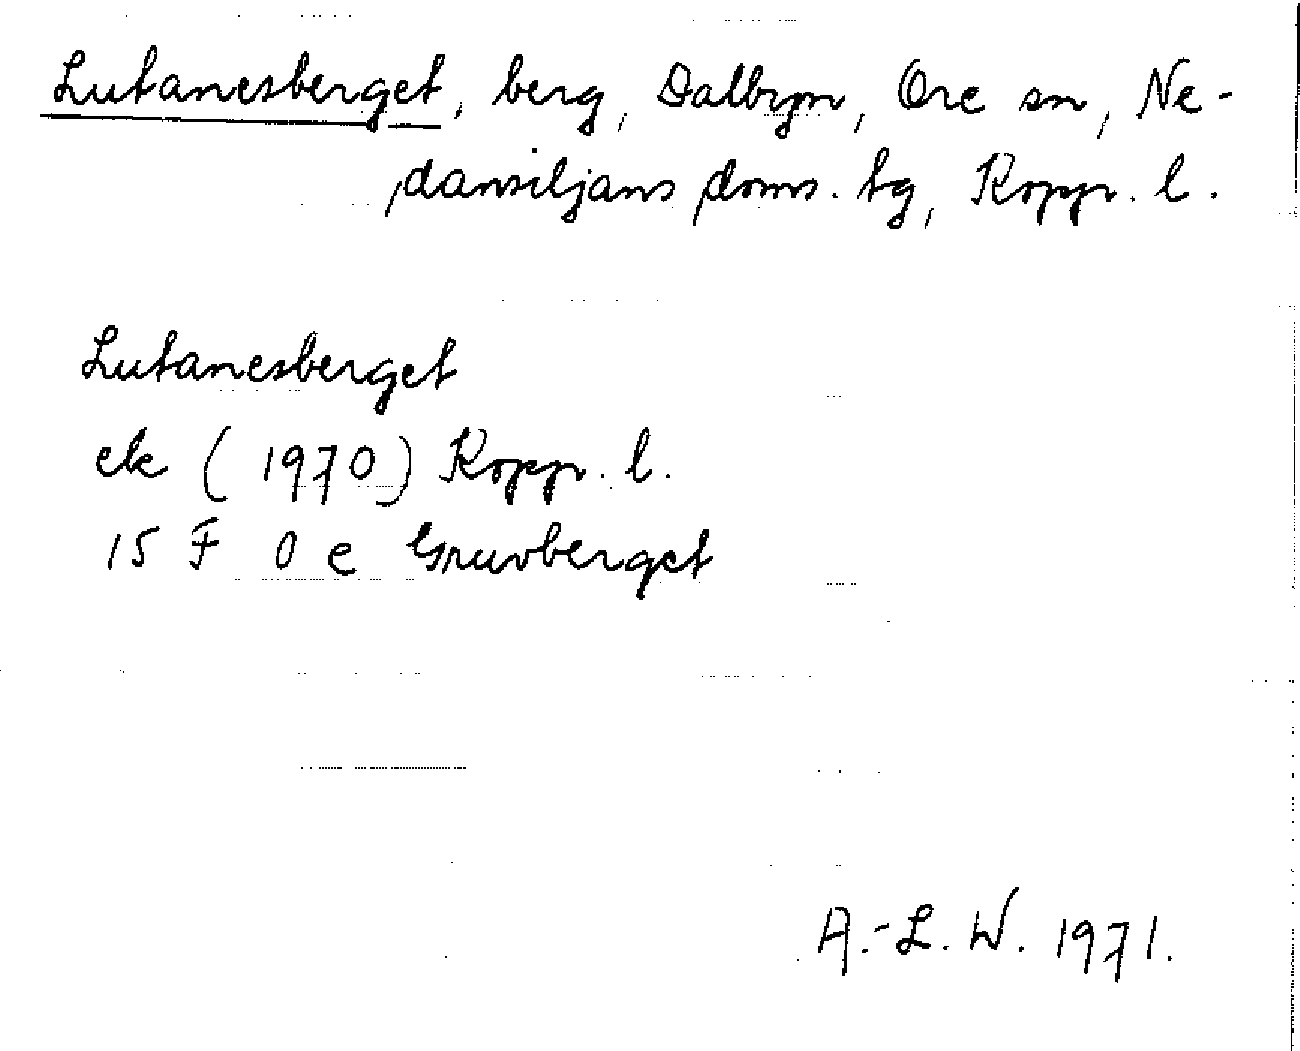 Lutanesberget, berg, Dalbyn, Ore sn, Ne-
dansiljans doms. tg, Kopp. l.
Lutanesberget
ek (1970) Kopp. l.
15 F 0 e Gruvberget
A.-L. W. 1971.